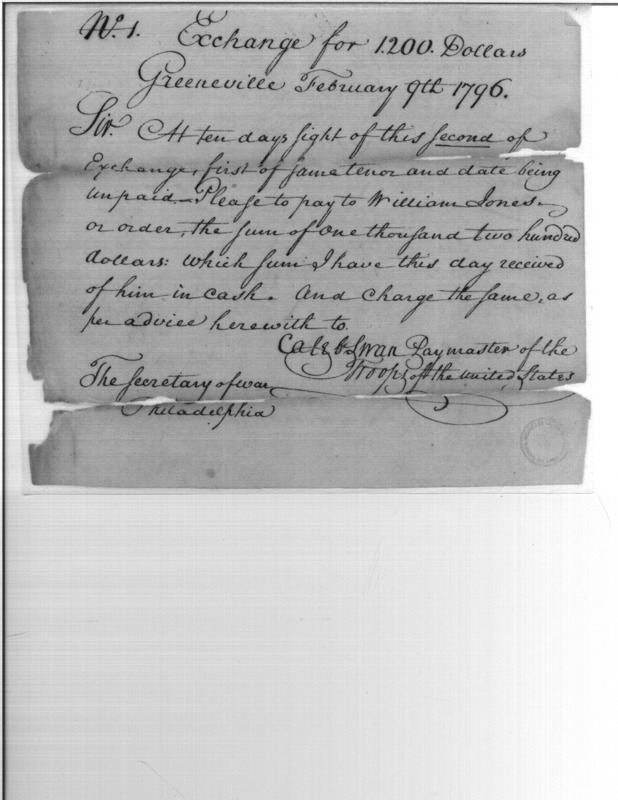 No. 1. Exchange for 1.200. Dollars
Greeneville February 9th 1796.
Sir. At ten days sight of this second of
Exchange, first of same tenor and date being
unpaid - Please to pay to William Jones -
or order, the sum of one thousand two hundred
dollars: which sum I have this day received
of him in cash. And charge the same, as
per advice herewith to
Caleb Swan Paymaster of the
Troops of the United States
The Secretary of war
Philadelphia